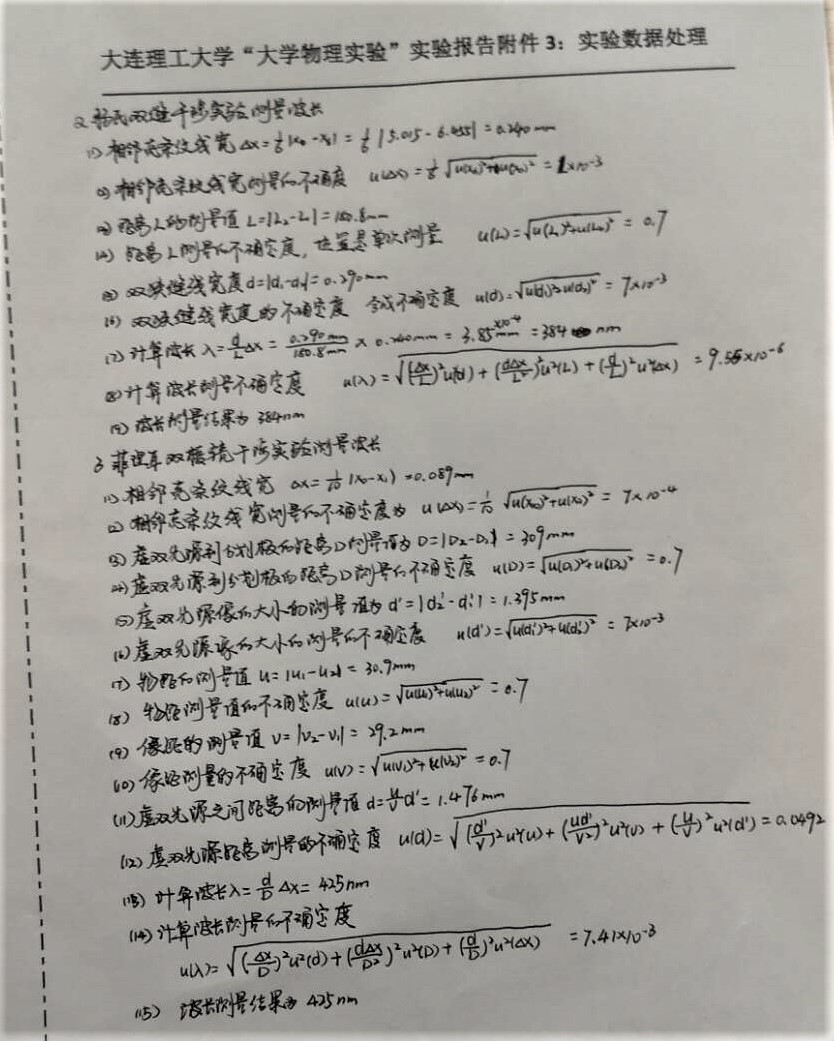 大连理工大学“大学物理实验”实验报告附件3：实验数据处理
2 杨氏双缝干涉实验测量波长
(1) 相邻亮条纹线宽 Δx=1/6|x₆-x₁|=1/6|5.015-6.455|=0.240mm
(2) 相邻亮条纹线宽测量的不确定度 u(Δx)=1/6√u(x₆)²+u(x₁)² = 1×10⁻³
(3) 距离L的测量值 L=|L₂-L₁|=180.8mm
(4) 距离L测量的不确定度，位置是单次测量 u(L)=√u(L₁)²+u(L₂)² = 0.7
(5) 双狭缝线宽度d=|d₁-d₂|=0.290mm
(6) 双狭缝线宽度的不确定度 合成不确定度 u(d)=√u(d₁)²+u(d₂)² = 7×10⁻³
(7) 计算波长 λ=d/L Δx = 0.290mm/180.8mm × 0.240mm = 3.85×10⁻⁴mm =384 nm
(8) 计算波长测量不确定度 u(λ)=√(Δx/L)²u²(d)+(dΔx/L²)²u²(L)+(d/L)²u²(Δx) = 9.55×10⁻⁶
(9) 波长测量结果为 384nm
3 菲涅耳双棱镜干涉实验测量波长
(1) 相邻亮条纹线宽 Δx=1/10|x₁₀-x₁|=0.089mm
(2) 相邻亮条纹线宽测量的不确定度为 u(Δx)=1/10 √u(x₁₀)²+u(x₁)² = 7×10⁻⁴
(3) 虚双光源到分划板的距离D测量值为 D=|D₂-D₁|=309mm
(4) 虚双光源到分划板的距离D测量的不确定度 u(D)=√u(D₁)²+u(D₂)² =0.7
(5) 虚双光源像的大小的测量值为 d'=|d₂'-d₁'|=1.395mm
(6) 虚双光源像的大小的测量的不确定度 u(d')=√u(d₁')²+u(d₂')² = 7×10⁻³
(7) 物距的测量值 u=|u₁-u₂|=30.9mm
(8) 物距测量值的不确定度 u(u)=√u(u₁)²+u(u₂)² =0.7
(9) 像距的测量值 v=|v₂-v₁|=29.2mm
(10) 像距测量的不确定度 u(v)=√u(v₁)²+u(v₂)² =0.7
(11) 虚双光源之间距离的测量值 d=u/v d'=1.476mm
(12) 虚双光源距离测量的不确定度 u(d)=√(d'/v)²u²(u)+(ud'/v²)²u²(v)+(u/v)²u²(d') =0.0492
(13) 计算波长λ=d/D Δx=425nm
(14) 计算波长测量的不确定度
u(λ)=√(Δx/D)²u²(d)+(dΔx/D²)²u²(D)+(d/D)²u²(Δx) =7.41×10⁻³
(15) 波长测量结果为 425nm